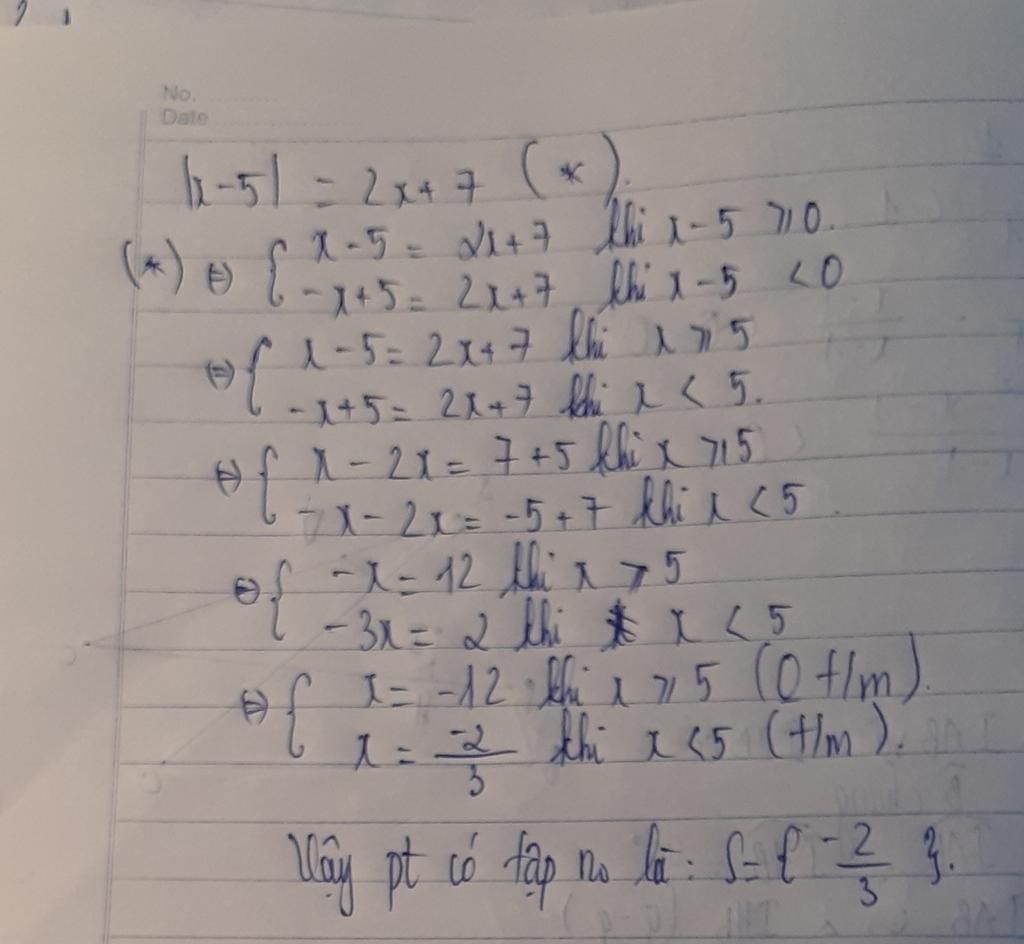 No.
Date
|x-5| = 2x+7 (*).
(*) ⇔ { x-5 = 2x+7 khi x-5 ⩾ 0.
-x+5 = 2x+7 khi x-5 < 0
⇔ { x-5 = 2x+7 khi x ⩾ 5
-x+5 = 2x+7 khi x < 5.
⇔ { x - 2x = 7+5 khi x ⩾ 5
-x - 2x = -5+7 khi x < 5
⇔ { -x = 12 khi x ⩾ 5
-3x = 2 khi x < 5
⇔ { x = -12 khi x ⩾ 5 (0 t/m).
x = -2/3 khi x < 5 (t/m).
Vậy pt có tập no là: S = { -2/3 }.